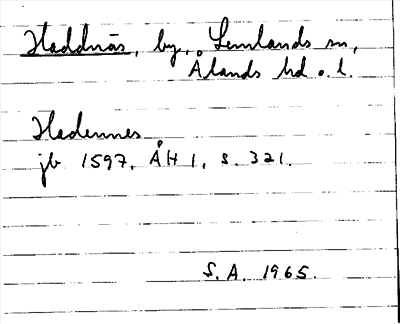 Haddnäs, by, Lemlands sn,
Ålands hd o. l.
Hadennes
jb 1597. ÅH 1, s. 321.
S. A. 1965.